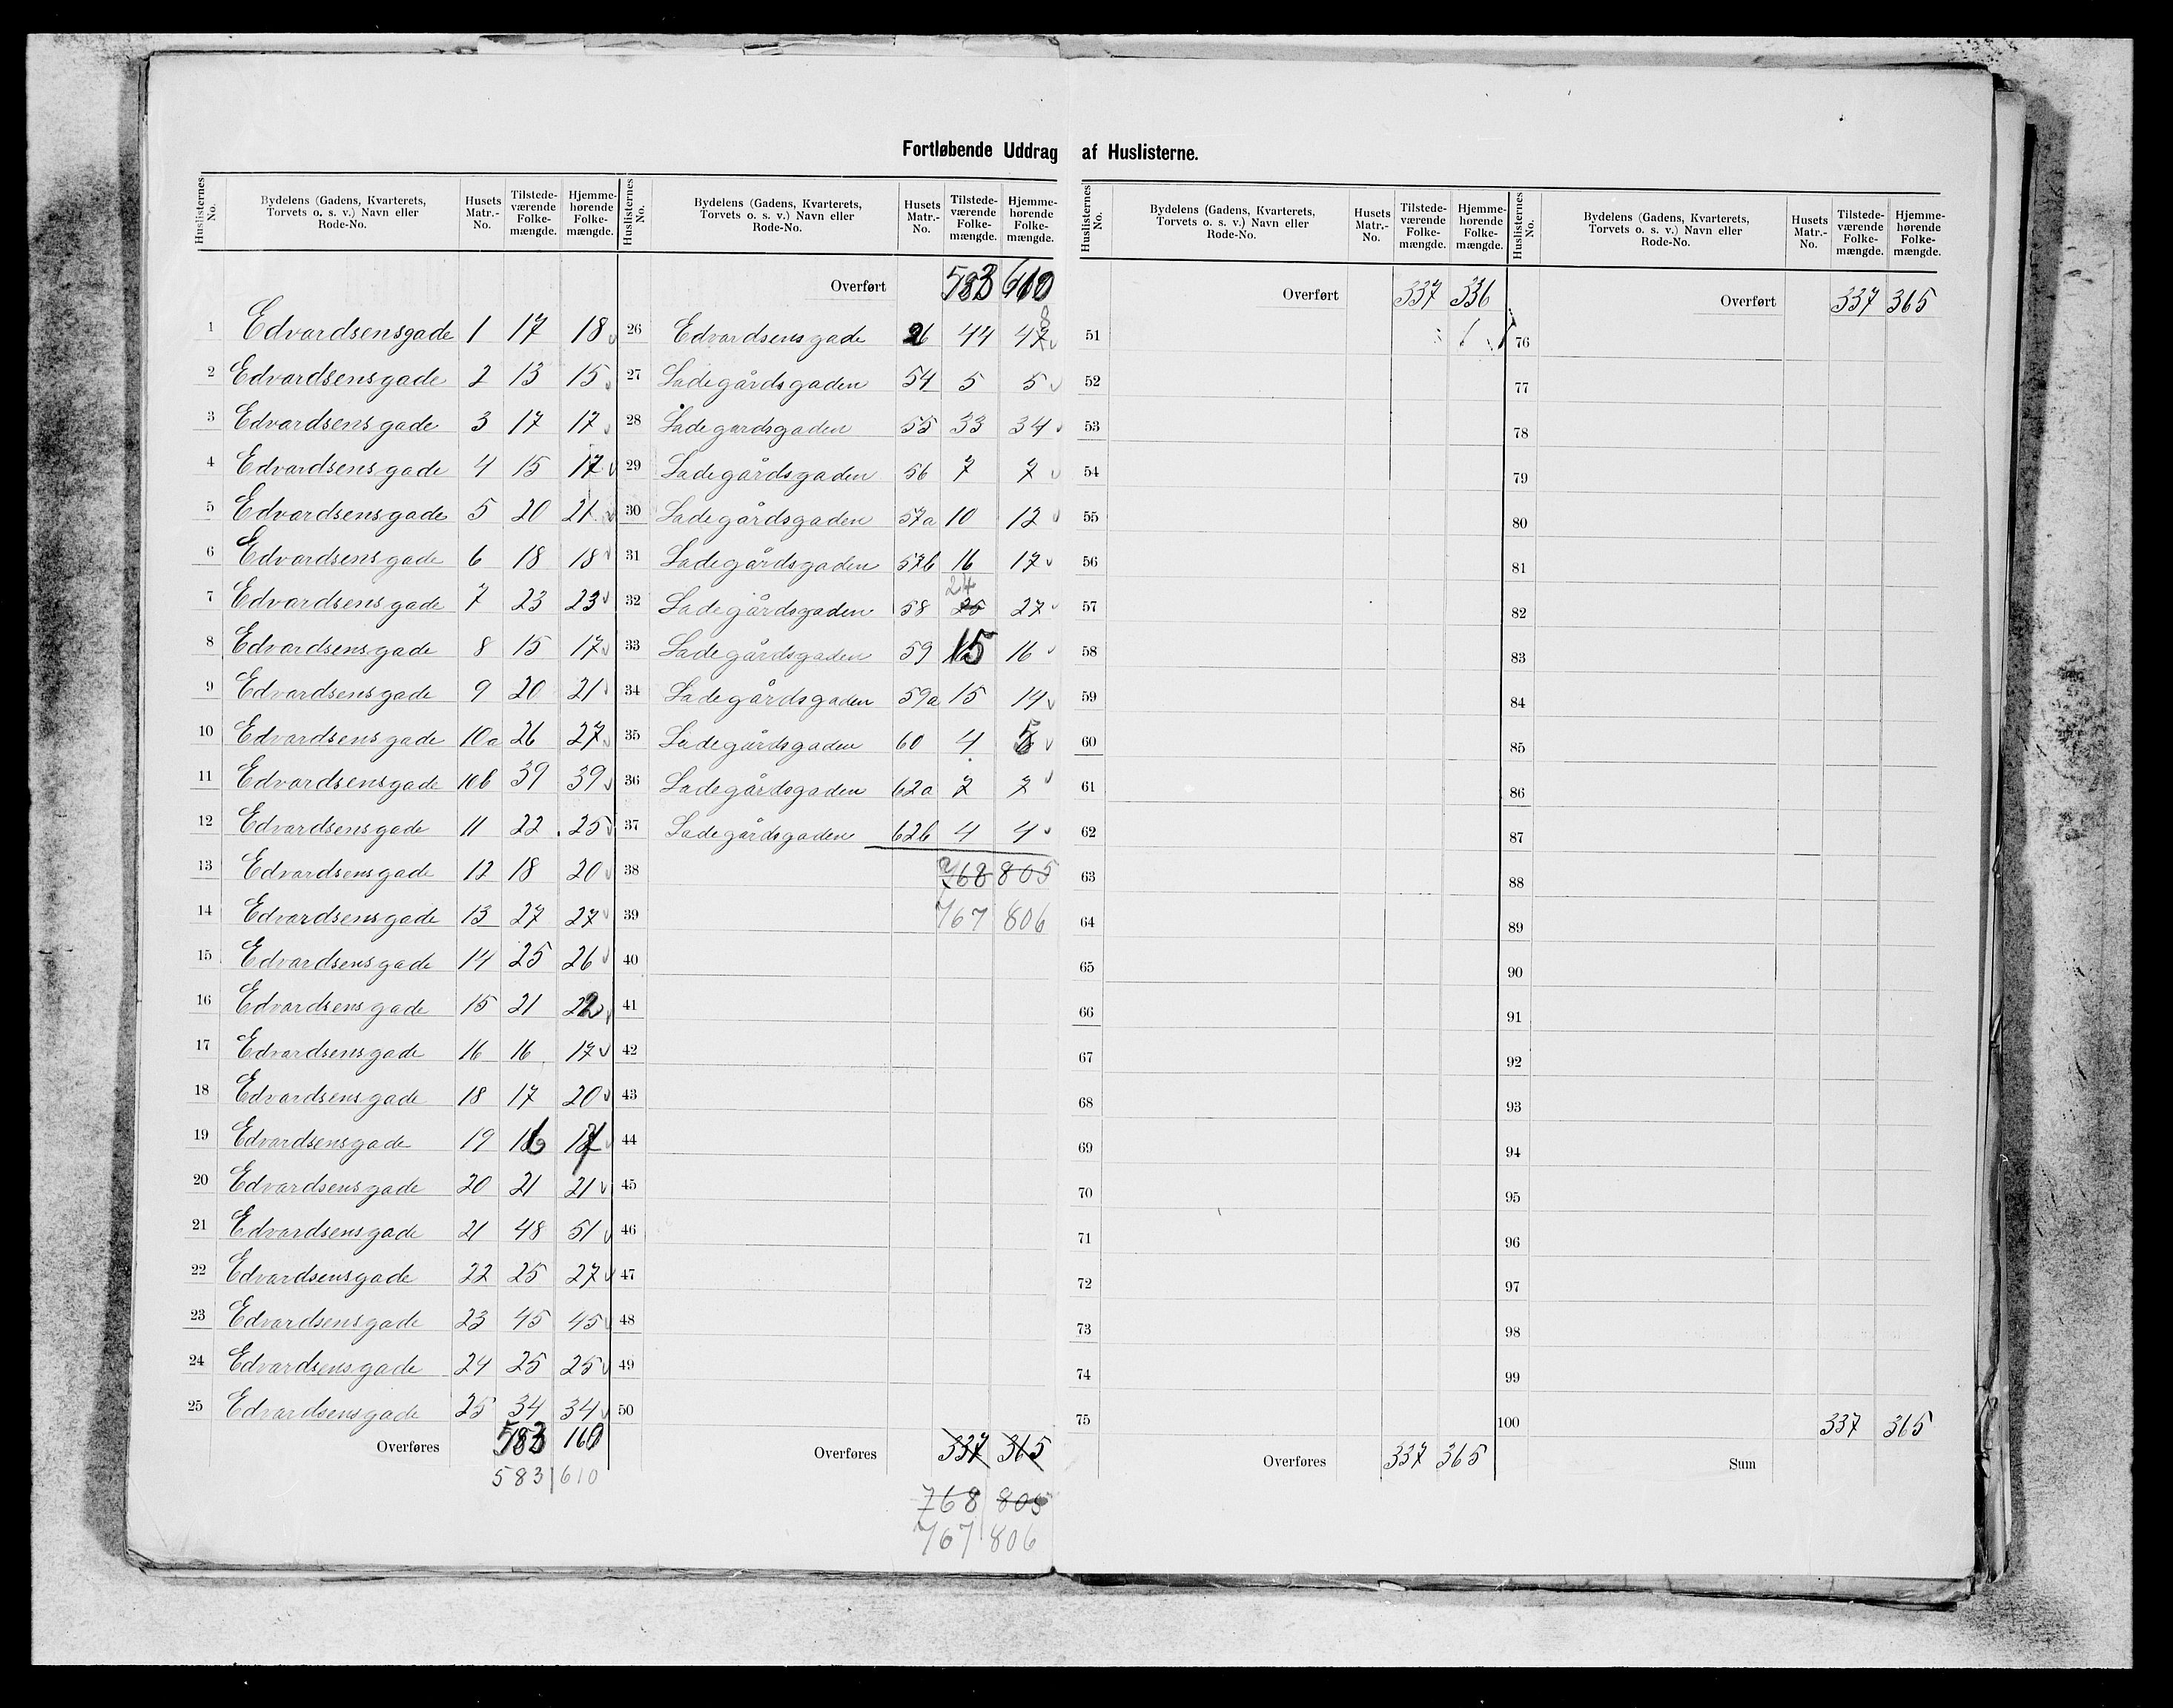 Fortløbende Uddrag af Huslisterne.
Huslisternes No. | Bydelens (Gadens, Kvarterets, Torvets o. s. v.) Navn eller Rode-No. | Husets Matr.-No. | Tilstede-værende Folke-mængde. | Hjemme-hørende Folke-mængde.
1 Edvardsensgade 1 17 18
2 Edvardsensgade 2 13 15
3 Edvardsensgade 3 17 17
4 Edvardsensgade 4 15 17
5 Edvardsensgade 5 20 21
6 Edvardsensgade 6 18 18
7 Edvardsensgade 7 23 23
8 Edvardsensgade 8 15 17
9 Edvardsensgade 9 20 21
10 Edvardsensgade 10a 26 27
11 Edvardsensgade 10b 39 39
12 Edvardsensgade 11 22 25
13 Edvardsensgade 12 18 20
14 Edvardsensgade 13 27 27
15 Edvardsensgade 14 25 26
16 Edvardsensgade 15 21 22
17 Edvardsensgade 16 16 17
18 Edvardsensgade 18 17 20
19 Edvardsensgade 19 16 17
20 Edvardsensgade 20 21 21
21 Edvardsensgade 21 48 51
22 Edvardsensgade 22 25 27
23 Edvardsensgade 23 45 45
24 Edvardsensgade 24 25 25
25 Edvardsensgade 25 34 34
Overføres 583 160
583 610
Huslisternes No. | Bydelens (Gadens, Kvarterets, Torvets o. s. v.) Navn eller Rode-No. | Husets Matr.-No. | Tilstede-værende Folke-mængde. | Hjemme-hørende Folke-mængde.
Overført 583 610
26 Edvardsensgade 26 44 48
27 Ladegårdsgaden 54 5 5
28 Ladegårdsgaden 55 33 34
29 Ladegårdsgaden 56 7 7
30 Ladegårdsgaden 57a 10 12
31 Ladegårdsgaden 57b 16 17
32 Ladegårdsgaden 58 25 24 27
33 Ladegårdsgaden 59 15 16
34 Ladegårdsgaden 59a 15 14
35 Ladegårdsgaden 60 4 5
36 Ladegårdsgaden 62a 7 7
37 Ladegårdsgaden 62b 4 4
38 768 805
39 767 806
40
41
42
43
44
45
46
47
48
49
50
Overføres 337 365
768 805
767 806
Huslisternes No. | Bydelens (Gadens, Kvarterets, Torvets o. s. v.) Navn eller Rode-No. | Husets Matr.-No. | Tilstede-værende Folke-mængde. | Hjemme-hørende Folke-mængde.
Overført 337 336
51
52
53
54
55
56
57
58
59
60
61
62
63
64
65
66
67
68
69
70
71
72
73
74
75
Overføres 337 365
Huslisternes No. | Bydelens (Gadens, Kvarterets, Torvets o. s. v.) Navn eller Rode-No. | Husets Matr.-No. | Tilstede-værende Folke-mængde. | Hjemme-hørende Folke-mængde.
Overført 337 365
76
77
78
79
80
81
82
83
84
85
86
87
88
89
90
91
92
93
94
95
96
97
98
99
100 337 365
Sum